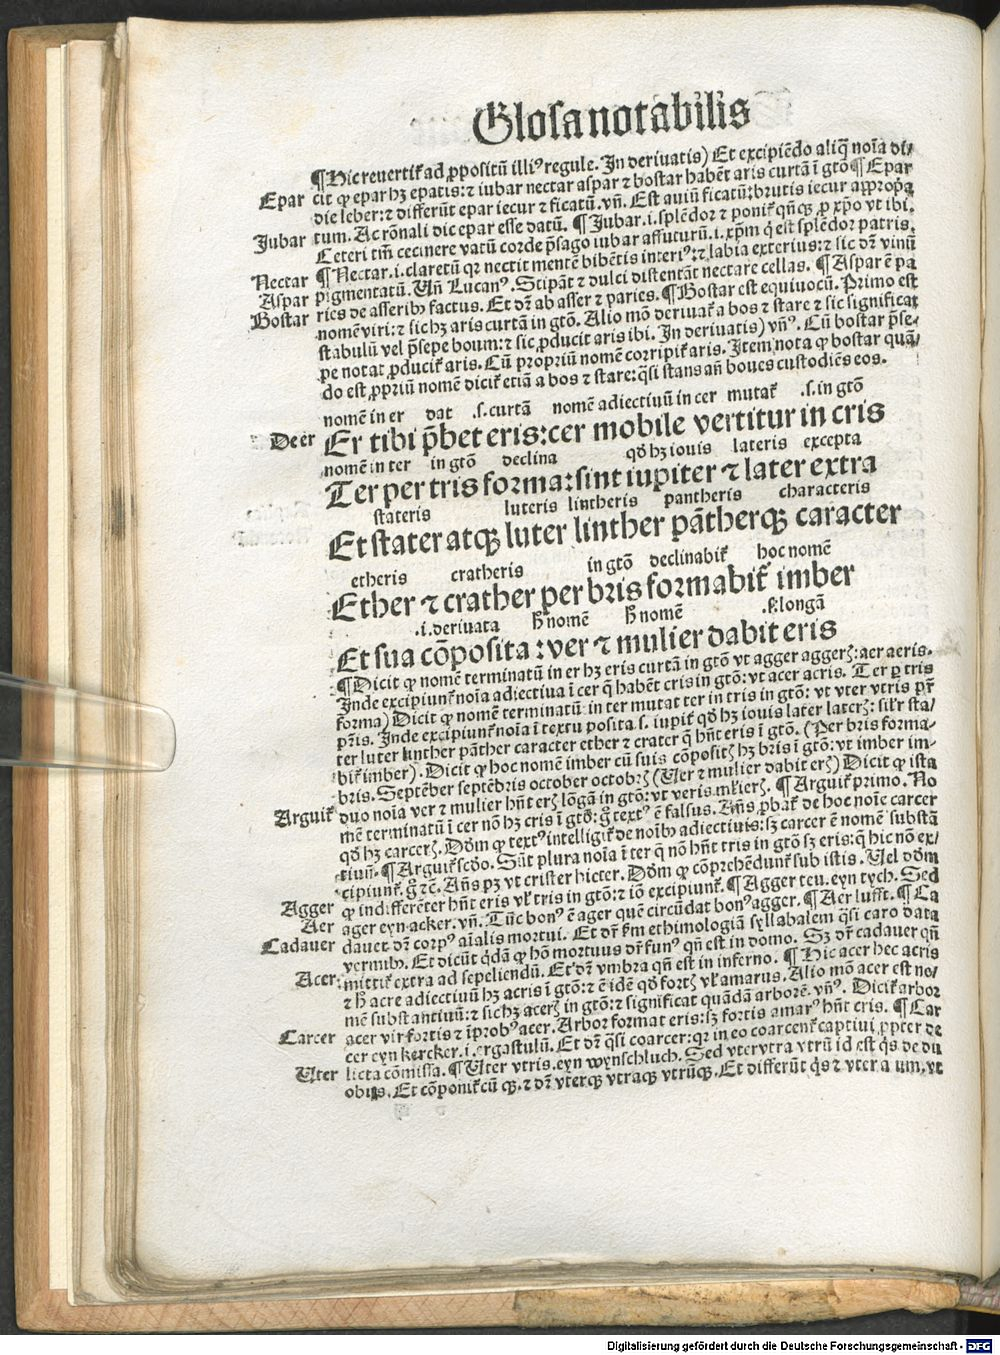 Glosa notabilis
¶Hic reuertit᷑ ad ꝓpositū illiꝰ regule. In deriuatis) Et excipiēdo aliq̄ noīa di/
Epar cit ꝙ epar hꝫ epatis: ⁊ iubar nectar aspar ⁊ bostar habēt aris curtā ī gtō ¶Epar
die leber: ⁊ differūt epar iecur ⁊ ficatū. vn̄. Est auiū ficatū: brutis iecur appropa
Jubar tum. Ac rōnali dic epar esse datū. ¶Jubar .i. splēdor ⁊ ponit᷑ qn̄qꝫ ꝓ xp̄o vt ibi.
Ceteri tm̄ cecinere vatū corde p̄sago iubar affuturū .i. xp̄m q̇ est splēdor patris.
Nectar ¶Nectar .i. claretū qꝛ nectit mentē bibētis interiꝰ: ⁊ labia exteriꝰ: ⁊ sic dr̄ vinū
Aspar pigmentatū. Vn̄ Lucanꝰ. Stipāt ⁊ dulci distentāt nectare cellas. ¶Aspar ē pa
Bostar ries de asserib factus. Et dr̄ ab asser ⁊ paries. ¶Bostar est equiuocū. Primo est
nomē viri: ⁊ sic hꝫ aris curtā in gtō. Alio mō deriuat᷑ a bos ⁊ stare ⁊ sic significat
stabulū vel p̄sepe boum: ⁊ sic ꝓducit aris ibi. In deriuatis) vn̄ꝰ. Cū bostar p̄se-
pe notat ꝓducit᷑ aris. Cū propriū nomē corripit᷑ aris. Item nota ꝙ bostar quā/
do est ꝓpriū nomē dicit᷑ etiā a bos ⁊ stare: q̄si stans an̄ boues custodiēs eos.
nomē in er dat .s. curtā nomē adiectiuū in cer mutat᷑ .s. in gtō
De er Er tibi p̄bet eris: cer mobile vertitur in cris
nomē in ter in gtō declina qd̓ hꝫ iouis lateris excepta
Ter per tris forma: sint iupiter ⁊ later extra
stateris luteris lintheris pantheris characteris
Et stater atqꝫ luter linther pātherqꝫ caracter
etheris cratheris in gtō declinabit᷑ hoc nomē
Ether ⁊ crather per bris formabit᷑ imber
.i. deriuata h̄ nomē h̄ nomē .s. longā
Et sua cōposita: ver ⁊ mulier dabit eris
¶Dicit ꝙ nomē terminatū in er hꝫ eris curtā in gtō vt agger aggerꝫ: aer aeris.
Inde excipiunt᷑ noīa adiectiua ī cer q̄ habēt cris in gtō: vt acer acris. Ter ꝑ tris
forma) Dicit ꝙ nomē terminatū in ter mutat ter in tris in gtō: vt vter vtris pr̄
pr̄is. Inde excipiunt᷑ noīa ī textu posita .s. iupit᷑ qd̓ hꝫ iouis later laterꝫ: silr̄ sta/
ter luter linther pāther caracter ether ⁊ crater q̄ hn̄t eris ī gtō. (Per bris forma-
bit᷑ imber). Dicit ꝙ hoc nomē imber cū suis cōpositꝫ hꝫ bris ī gtō: vt imber im-
bris. Septēber septēbris october octobrꝫ (Ver ⁊ mulier dabit erꝫ) Dicit ꝙ ista
Arguit᷑ duo noīa ver ⁊ mulier hn̄t erꝫ lōgā in gtō: vt veris mlierꝫ. ¶Arguit᷑ primo. No
mē terminatū ī cer nō hꝫ cris ī gtō: gͦ textꝰ ē falsus. An̄s ꝓbat᷑ de hoc noīe carcer
qd̓ hꝫ carcerꝫ. Dd̓m ꝙ textꝰ intelligit᷑ de noīb adiectiuis: sꝫ carcer ē nomē substā
tiuū. ¶Arguit᷑ scd̓o. Sūt plura noīa ī ter q̄ nō hn̄t tris in gtō sꝫ eris: q̄ hic nō ex/
cipiunt᷑. gͦ ⁊c̄. An̄s pꝫ vt crister hicter. Dd̓m ꝙ cōprehēdunt᷑ sub istis. Vel dd̓m
Agger ꝙ indifferēter hn̄t eris vl̓ tris in gtō: ⁊ iō excipiunt᷑. ¶Agger teu. eyn tych. Sed
Aer ager eyn acker. vn̄. Tūc bonꝰ ē ager quē circūdat bonꝰ agger. ¶Aer lufft. ¶Ca
Cadauer dauer dr̄ corpꝰ aīalis mortui. Et dr̄ fm̄ ethimologiā syllabalem q̄si caro data
vermib. Et dicūt q̇dā ꝙ hō mortuus dr̄ funꝰ qn̄ est in domo. Sꝫ dr̄ cadauer qn̄
Acer mittit᷑ extra ad sepeliendū. Et dr̄ vmbra qn̄ est in inferno. ¶Hic acer hec acris
⁊ h̄ acre adiectiuū hꝫ acris ī gtō: ⁊ ē idē qd̓ fortꝫ vl̓ amarus. Alio mō acer est no/
mē substantiuū: ⁊ sic hꝫ acerꝫ in gtō: ⁊ significat quādā arborē. vn̄ꝰ. Dicit᷑ arbor
acer vir fortis ⁊ īprobꝰ acer. Arbor format eris: sꝫ fortis amarꝰ hn̄t cris. ¶Car
Carcer cer eyn kercker .i. ergastulū. Et dr̄ q̄si coarcer: qꝛ in eo coarcent᷑ captiui ꝓpter de
licta cōmissa. ¶Vter vtris. eyn wynschluch. Sed vter vtra vtrū id est q̇s de du
Vter obus. Et cōponit᷑ cū qꝫ. ⁊ dr̄ vterqꝫ vtraqꝫ vtrūqꝫ. Et differūt q̇s ⁊ vter a um. vt
Digitalisierung gefördert durch die Deutsche Forschungsgemeinschaft - DFG